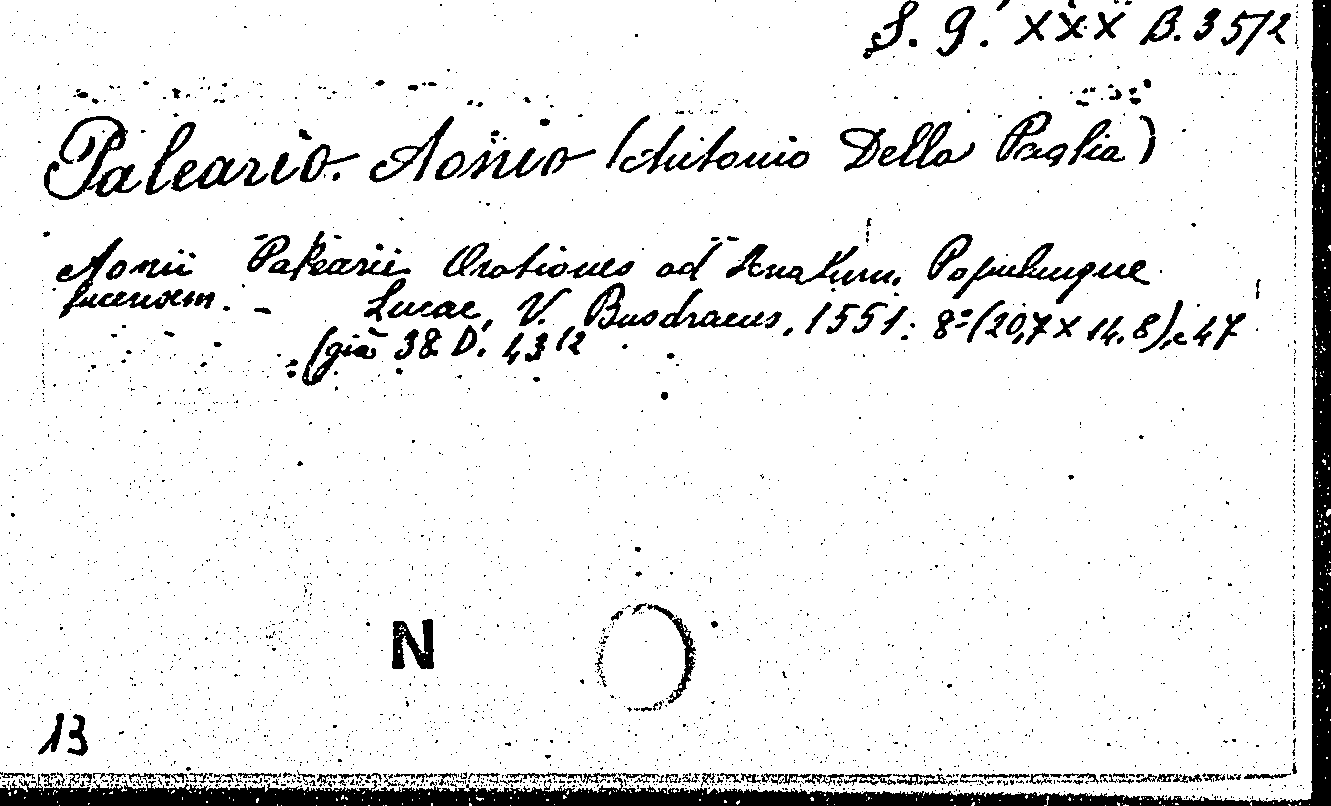 S. Q. XXX B. 35/2
Paleario. Aonio (Antonio Della Paglia)
Aonii Palearii Orationes ad Senatum. Populumque
Lucensem. - Lucae, V. Busdracus, 1551. 8º (20,7 x 14.8), c 47
(già 38. D. 43/2
N
13